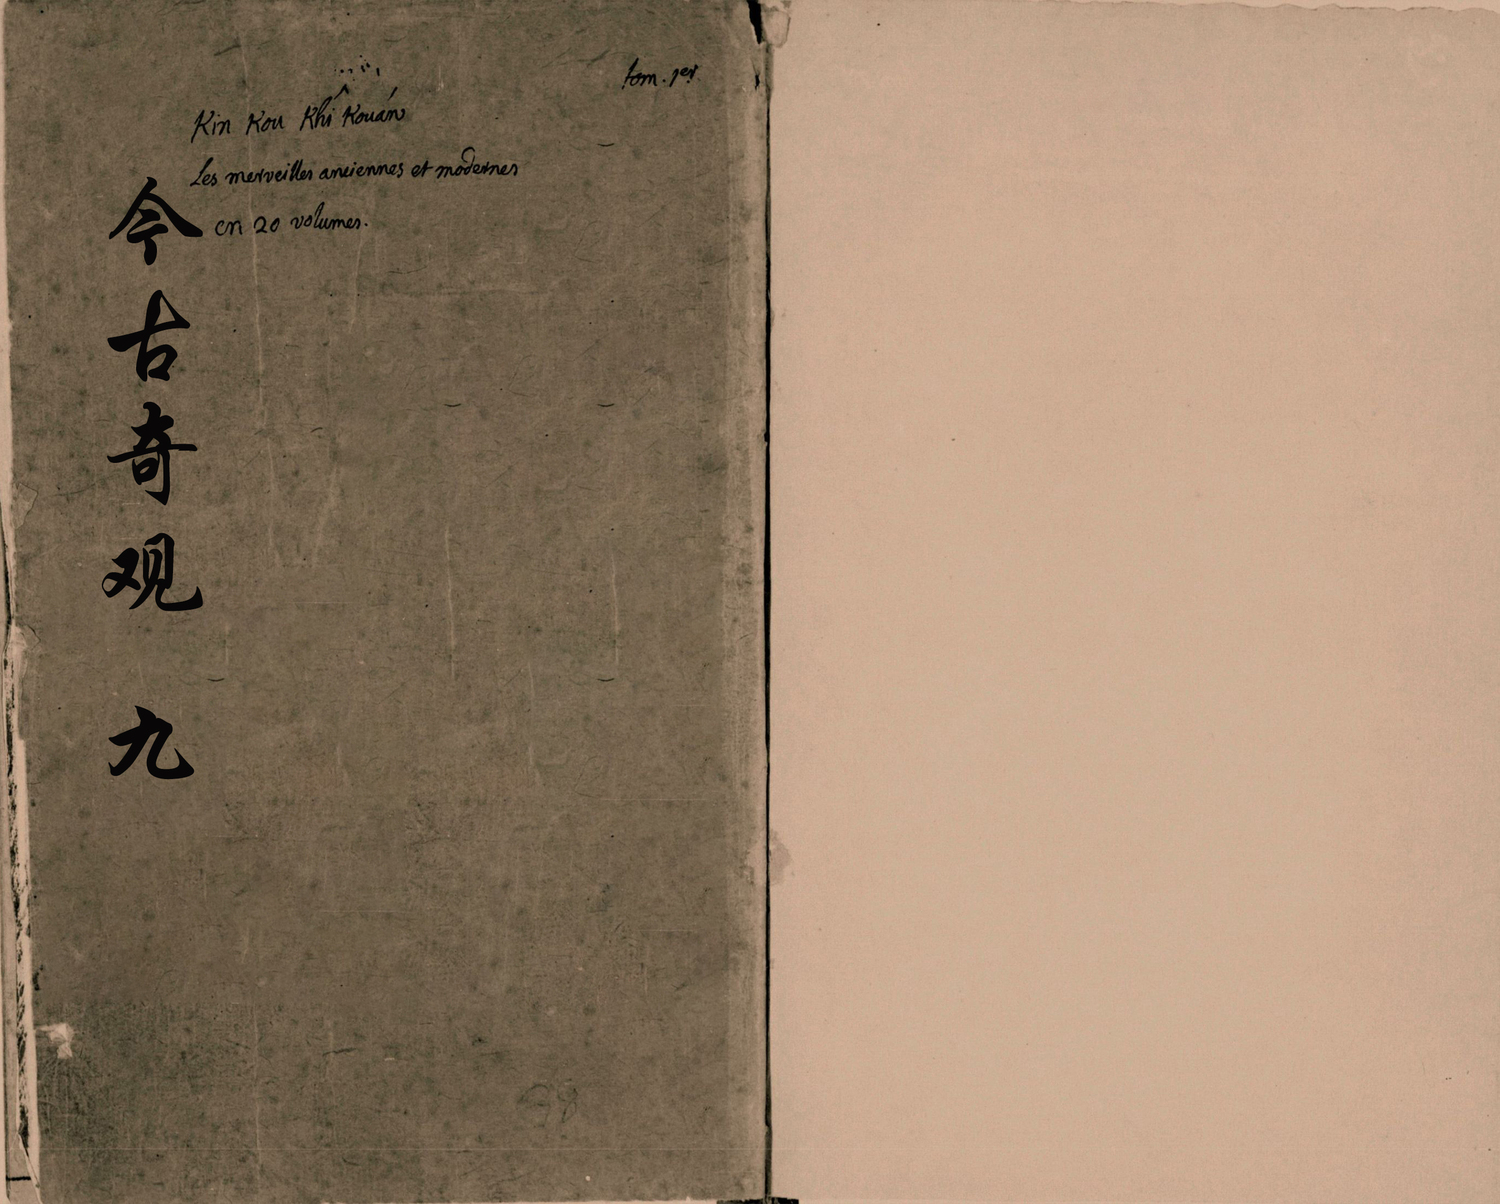 tom. 1er
Kin Kou Khî Kouán
Les merveilles anciennes et modernes
en 20 volumes.
今古奇观 九